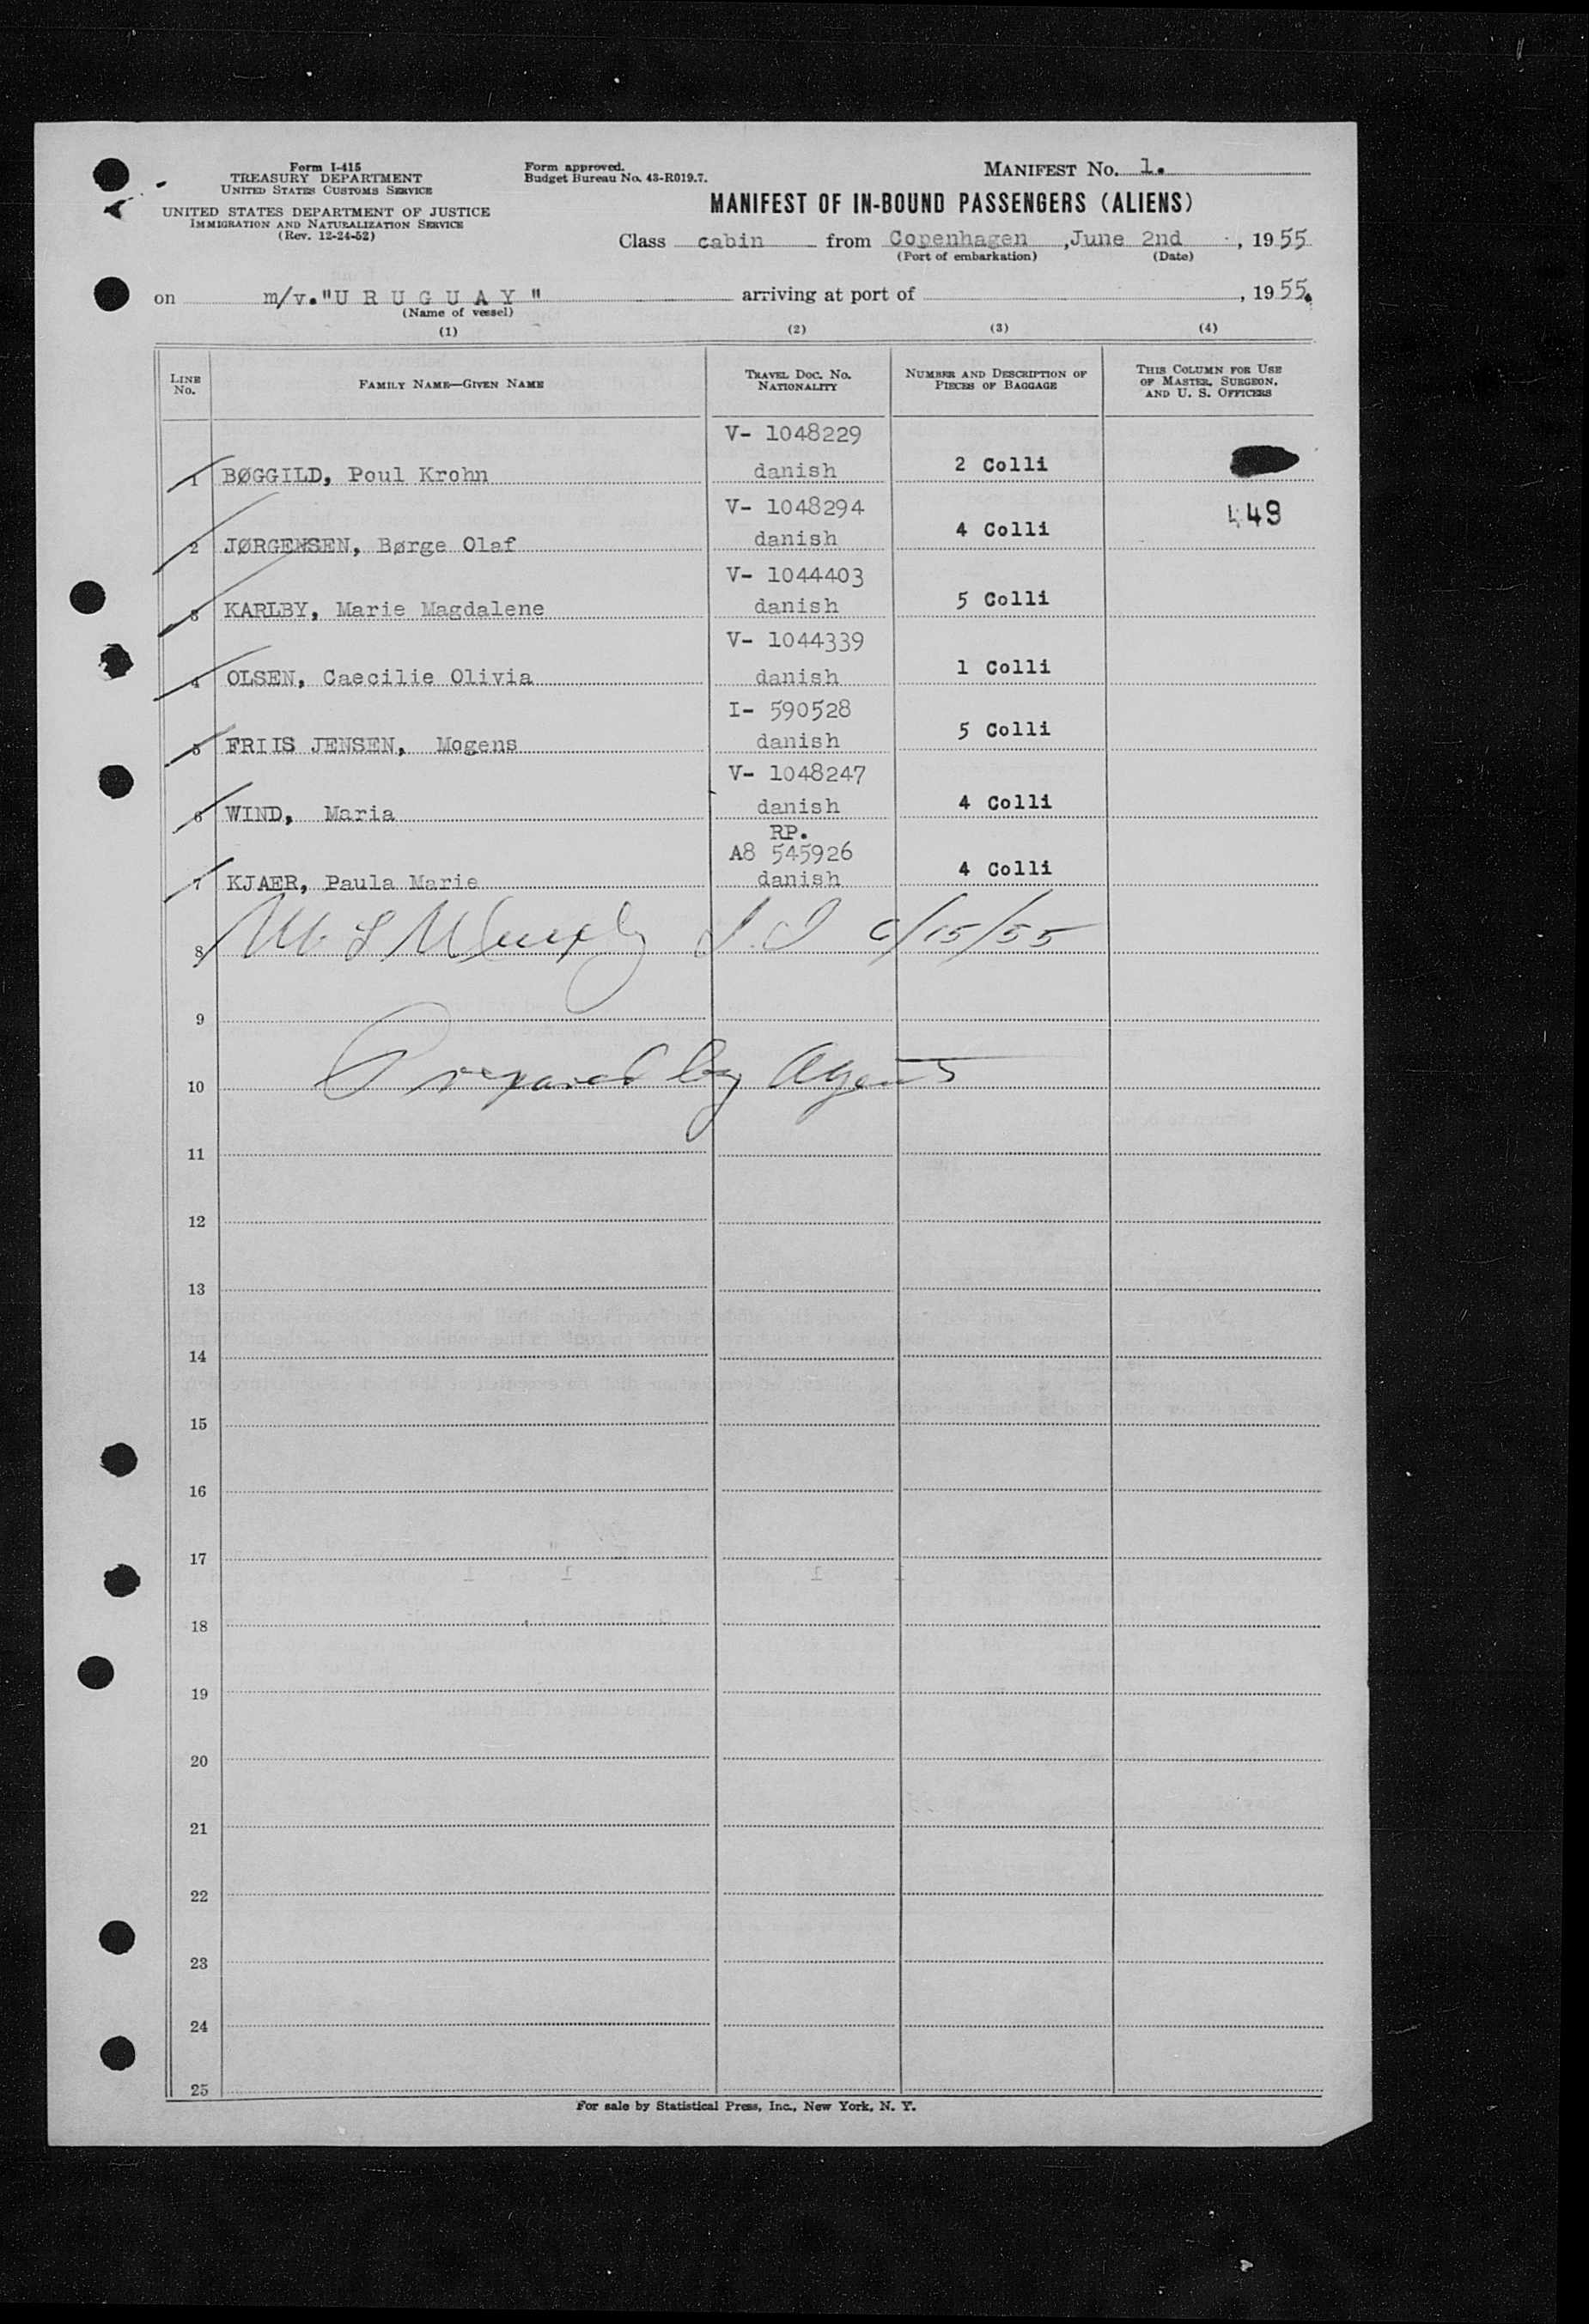 Form I-415
TREASURY DEPARTMENT
UNITED STATES CUSTOMS SERVICE
UNITED STATES DEPARTMENT OF JUSTICE
IMMIGRATION AND NATURALIZATION SERVICE
(Rev. 12-24-52)
Form approved.
Budget Bureau No. 43-R019.7.
MANIFEST No. 1.
MANIFEST OF IN-BOUND PASSENGERS (ALIENS)
Class cabin from Copenhagen, June 2nd, 1955
(Port of embarkation) (Date)
on m/v. "U R U G U A Y" arriving at port of , 1955.
(Name of vessel)
(1) (2) (3) (4)
LINE No. FAMILY NAME—GIVEN NAME TRAVEL DOC. NO. NATIONALITY NUMBER AND DESCRIPTION OF PIECES OF BAGGAGE THIS COLUMN FOR USE OF MASTER, SURGEON, AND U. S. OFFICERS
V- 1048229
1 BØGGILD, Poul Krohn danish 2 Colli
V- 1048294 449
2 JØRGENSEN, Børge Olaf danish 4 Colli
V- 1044403
3 KARLBY, Marie Magdalene danish 5 Colli
V- 1044339
4 OLSEN, Caecilie Olivia danish 1 Colli
I- 590528
5 FRIIS JENSEN, Mogens danish 5 Colli
V- 1048247
6 WIND, Maria danish 4 Colli
RP.
A8 545926
7 KJAER, Paula Marie danish 4 Colli
8 Murphy 6/15/55
9
10 Prepared by Agents
11
12
13
14
15
16
17
18
19
20
21
22
23
24
25
For sale by Statistical Press, Inc., New York, N. Y.